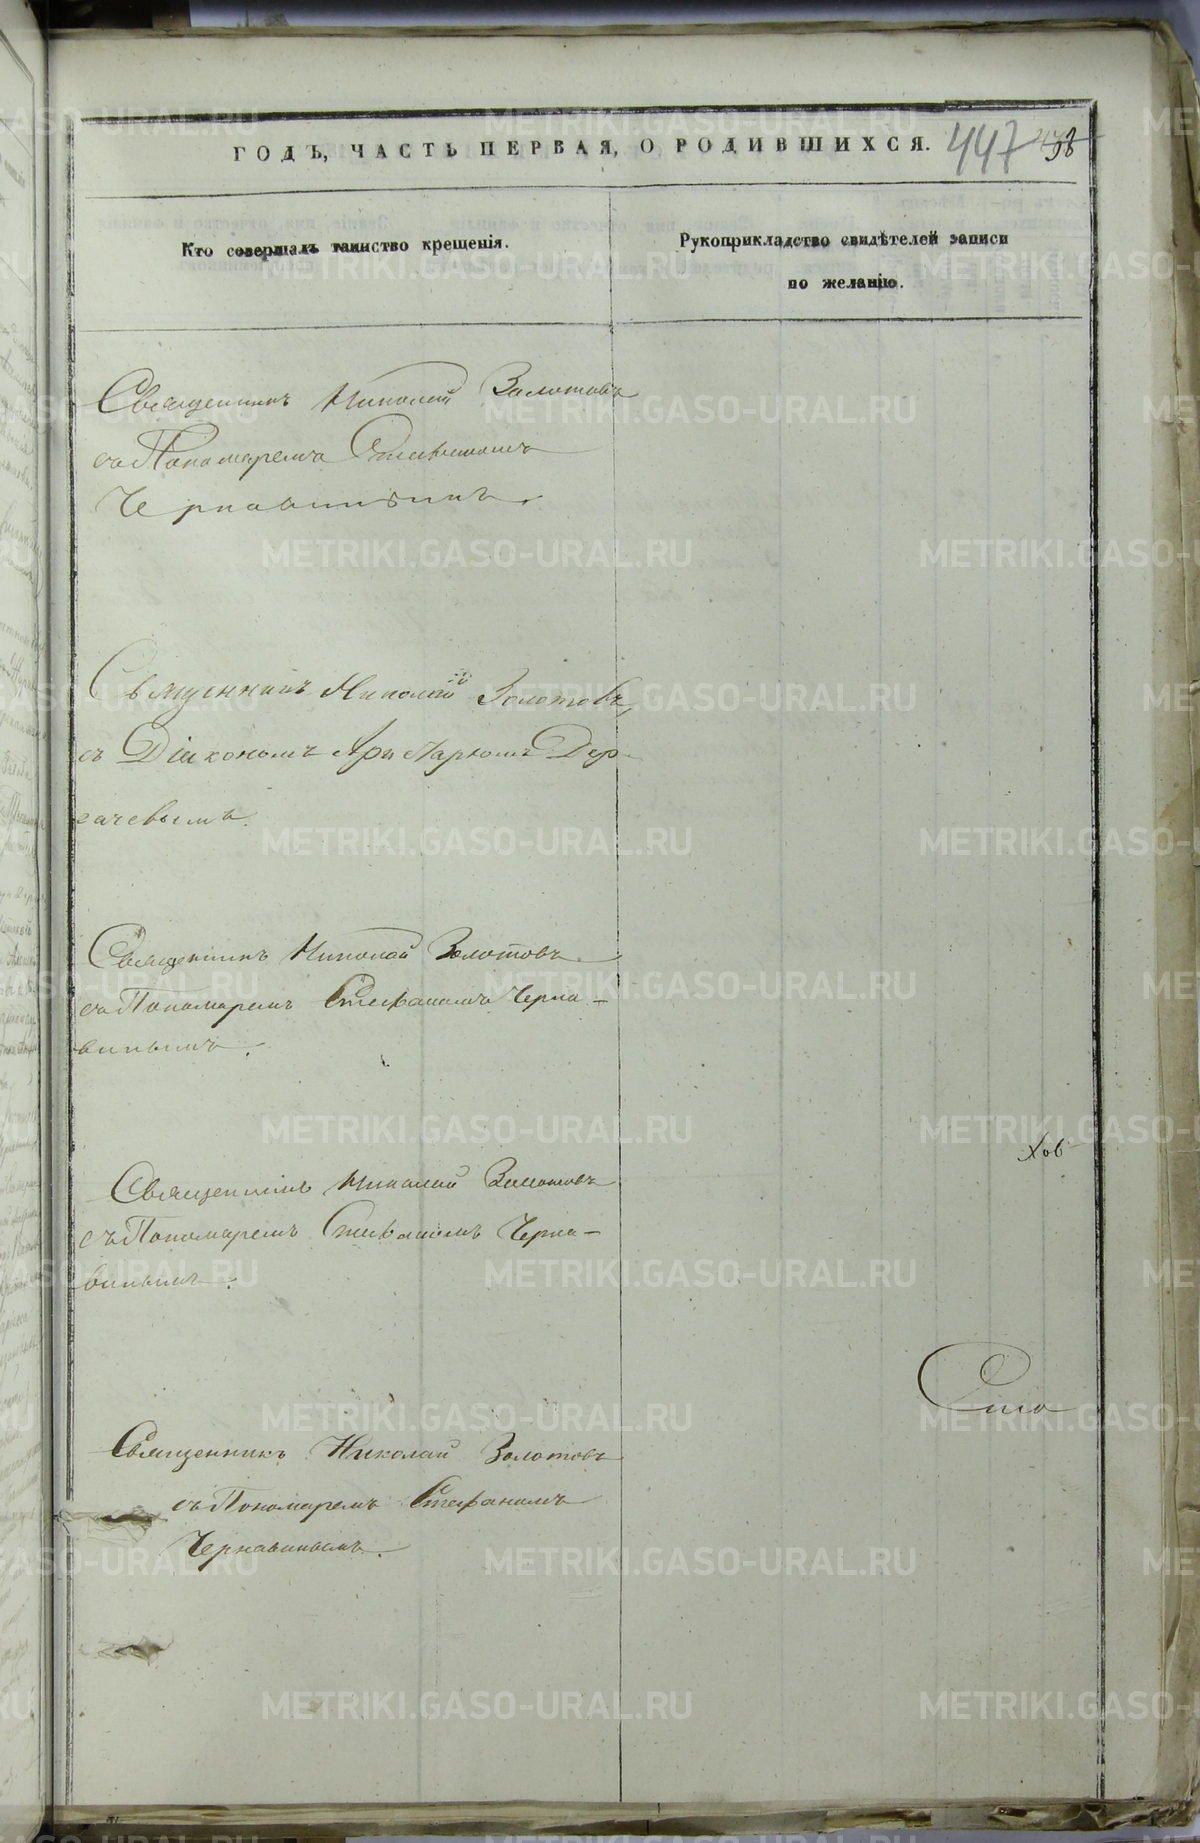 ГОДЪ, ЧАСТЬ ПЕРВАЯ, О РОДИВШИХСЯ. 447
Кто совершалъ таинство крещенія.
Рукоприкладство свидѣтелей записи
по желанію.
Священникъ Николай Золотовъ
съ Пономаремъ Стефаномъ
Чернавинымъ.
Священникъ Николай Золотовъ
съ Діакономъ Аристархомъ Дер-
гачевымъ.
Священникъ Николай Золотовъ
съ Пономаремъ Стефаномъ Черна-
винымъ.
Священникъ Николай Золотовъ
съ Пономаремъ Стефаномъ Черна-
винымъ.
Священникъ Николай Золотовъ
съ Пономаремъ Стефаномъ
Чернавинымъ.
METRIKI.GASO-URAL.RU